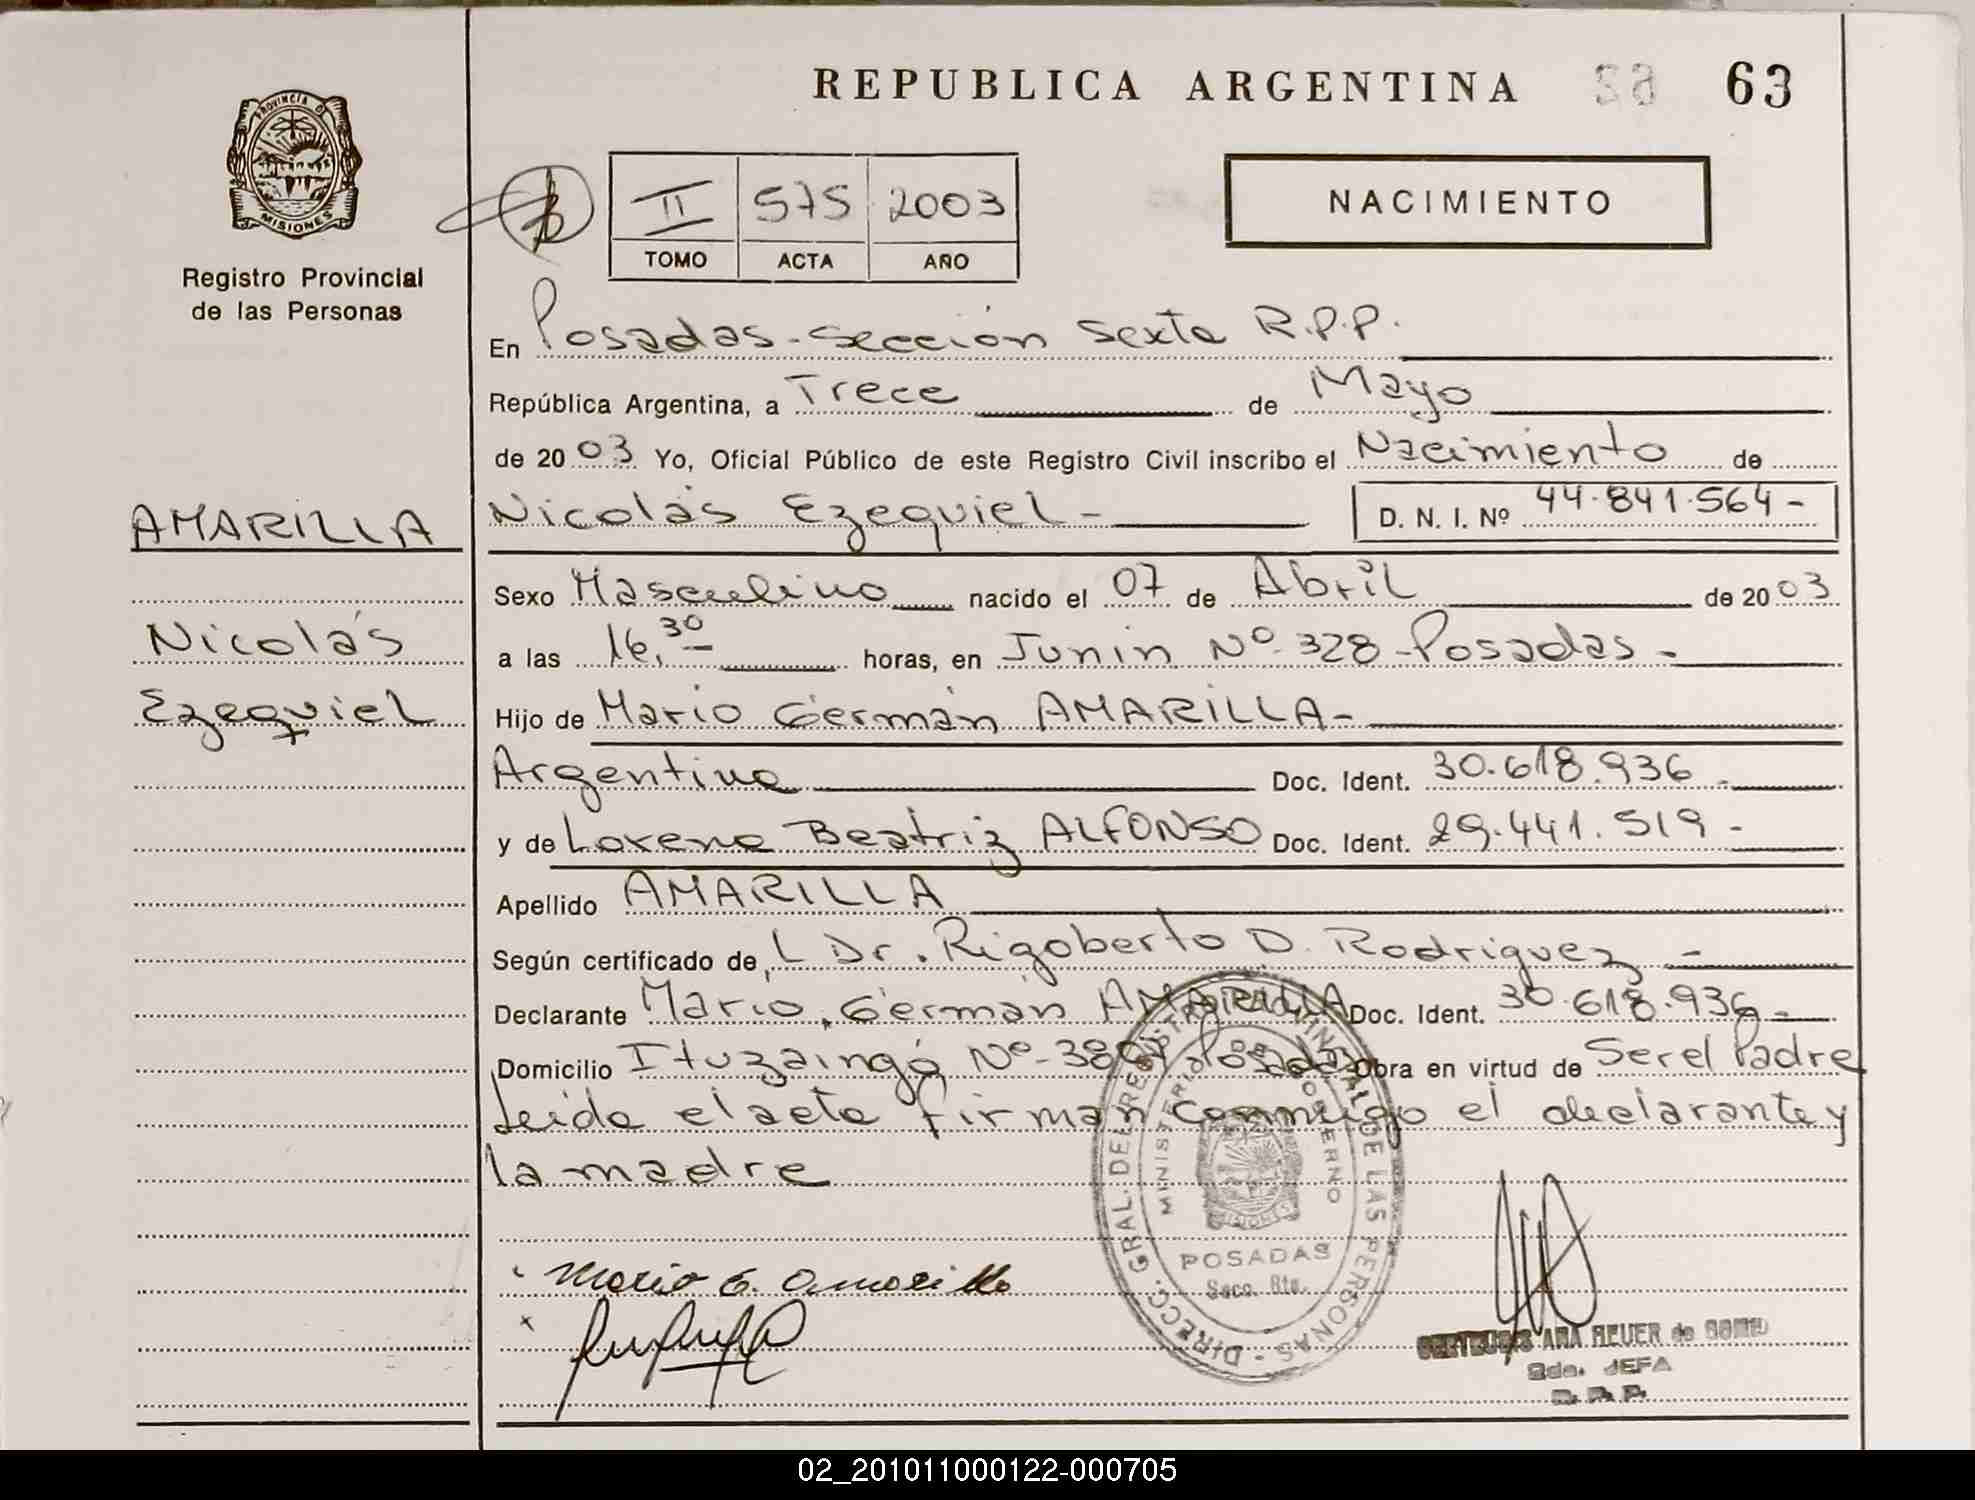 REPUBLICA ARGENTINA 63
PROVINCIA DE
MISIONES
Registro Provincial
de las Personas
II 575 2003
TOMO ACTA AÑO
NACIMIENTO
En Posadas-Sección Sexta R.P.P.
República Argentina, a Trece de Mayo
de 2003 Yo, Oficial Público de este Registro Civil inscribo el Nacimiento de
AMARILLA
Nicolás Ezequiel-
D. N. I. Nº 44.841.564-
Sexo Masculino nacido el 07 de Abril de 2003
Nicolás
a las 16,30 horas, en Junin Nº 328-Posadas-
Ezequiel
Hijo de Mario Germán AMARILLA-
Argentino Doc. Ident. 30.618.936-
y de Lorena Beatriz ALFONSO Doc. Ident. 29.441.519-
Apellido AMARILLA
Según certificado de,L Dr. Rigoberto D. Rodriguez-
Declarante Mario, Germán AMARILLA Doc. Ident. 30.618.936-
Domicilio Ituzaingó Nº Posadas Obra en virtud de Ser el Padre
Leida el acta firman conmigo el declarante y
la madre
Mario G. Amarilla
DIRECC. GRAL. DEL REGISTRO PROVINCIAL DE LAS PERSONAS
MINISTERIO DE GOBIERNO
MISIONES
POSADAS
Secc. 6ta.
ANA de
2da. JEFA
R. P. P.
02_201011000122-000705